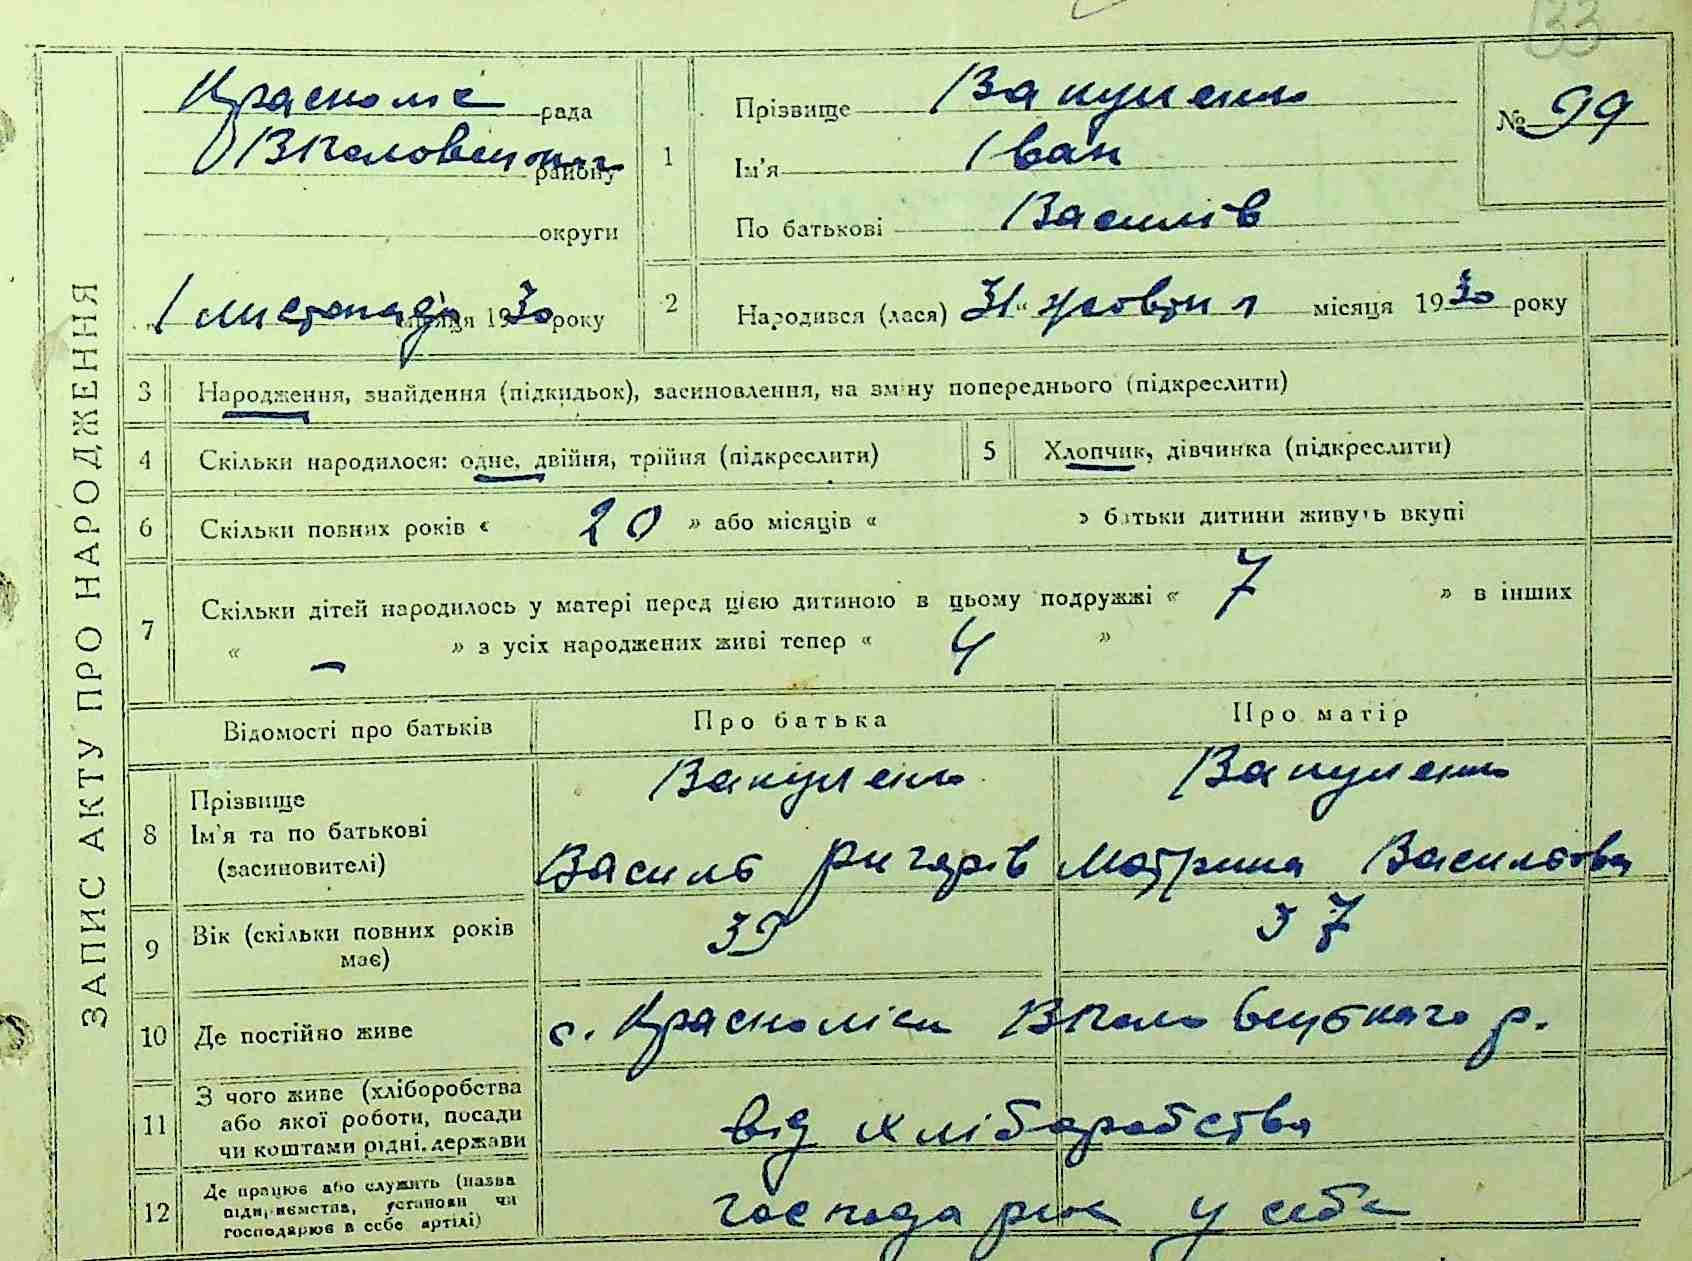 133
ЗАПИС АКТУ ПРО НАРОДЖЕННЯ
рада
району
округи
1 листопада місяця 1930 року
№ 99
1 Прізвище Вакуленко
Ім'я Іван
По батькові Василів
2 Народився (лася) 31 „ жовтня місяця 1930 року
3 Народження, знайдення (підкидьок), засиновлення, на зміну попереднього (підкреслити)
4 Скільки народилося: одне, двійня, трійня (підкреслити)
5 Хлопчик, дівчинка (підкреслити)
6 Скільки повних років « 20 » або місяців « » батьки дитини живуть вкупі
7 Скільки дітей народилось у матері перед цією дитиною в цьому подружжі « 7 » в інших
« – » з усіх народжених живі тепер « 4 »
Відомості про батьків Про батька Про матір
8 Прізвище
Ім'я та по батькові
(засиновителі)
Вакуленко Вакуленко
Василь Мотрина Василівна
9 Вік (скільки повних років
має)
39 37
10 Де постійно живе с. Красноліси р.
11 З чого живе (хліборобства
або якої роботи, посади
чи коштами рідні, держави
від хліборобства
12 Де працює або служить (назва
підприємства, установи чи
господарює в себе артілі)
господарює у себе